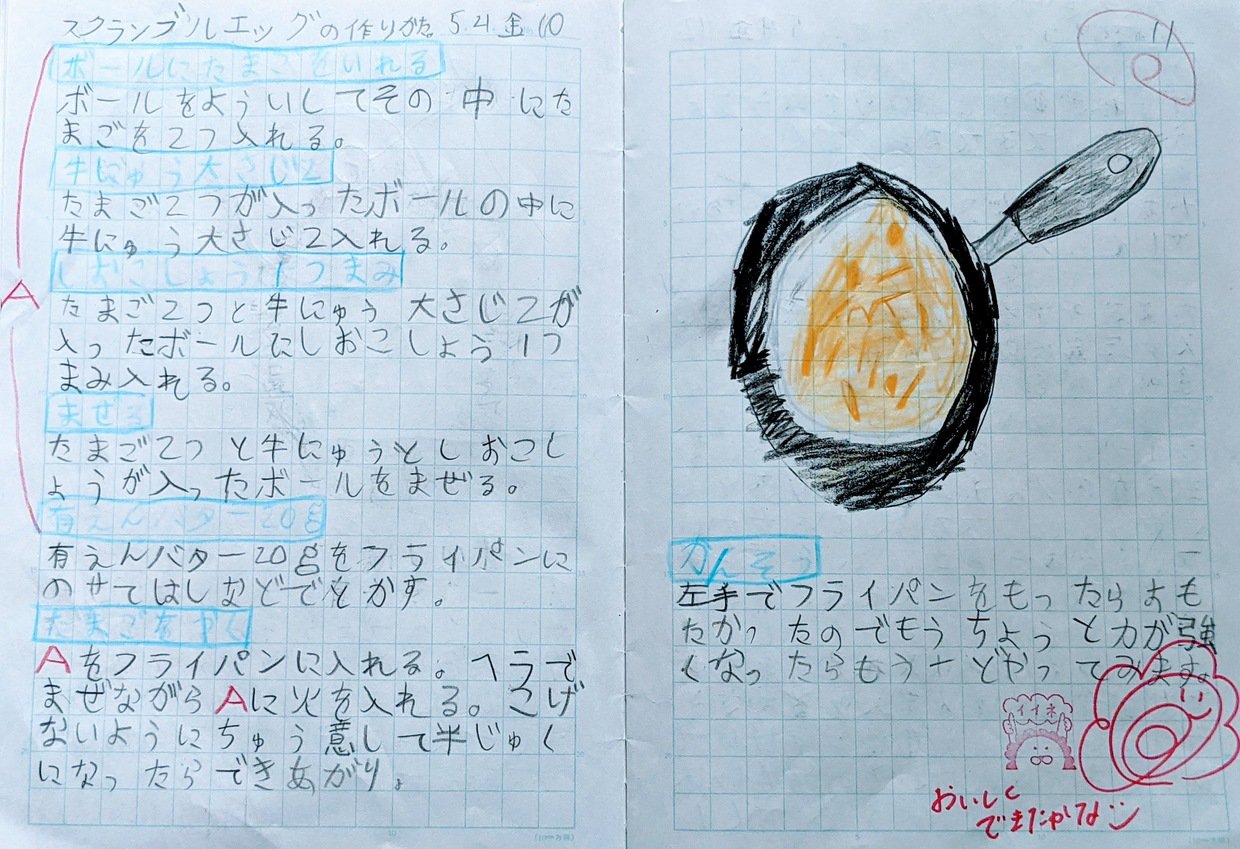 スクランブルエッグの作りかた 5.4.金 10
ボールにたまごをいれる
ボールをよういしてその中にた
まごを2つ入れる。
牛にゅう大さじ2
たまご2つが入ったボールの中に
牛にゅう大さじ2入れる。
しおこしょう1つまみ
A
たまご2つと牛にゅう大さじ2が
入ったボールにしおこしょう1つ
まみ入れる。
まぜる
たまご2つと牛にゅうとしおこし
ょうが入ったボールをまぜる。
有えんバター20g
有えんバター20gをフライパンに
のせてはしなどでとかす。
たまごをやく
Aをフライパンに入れる。ヘラで
まぜながらAに火を入れる。こげ
ないようにちゅう意して半じゅく
になったらできあがり。
11
かんそう
左手でフライパンをもったらおも
たかったのでもうちょっと力が強
くなったらもう一どやってみます。
イイネ
おいしく
できたかな